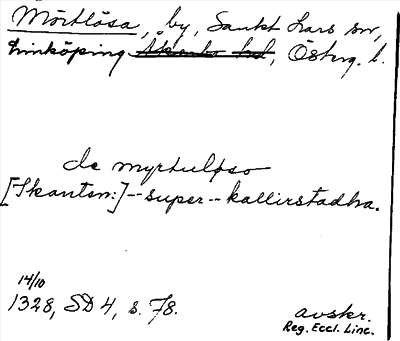 Mörtlösa, by, Sankt Lars sn,
Linköping Åkerbo hd, Östg. l.
de myrtulpso
[Skantsn:]--super--kallirstadha.
14/10
1328, SD 4, s. 78.
avskr.
Reg. Eccl. Linc.